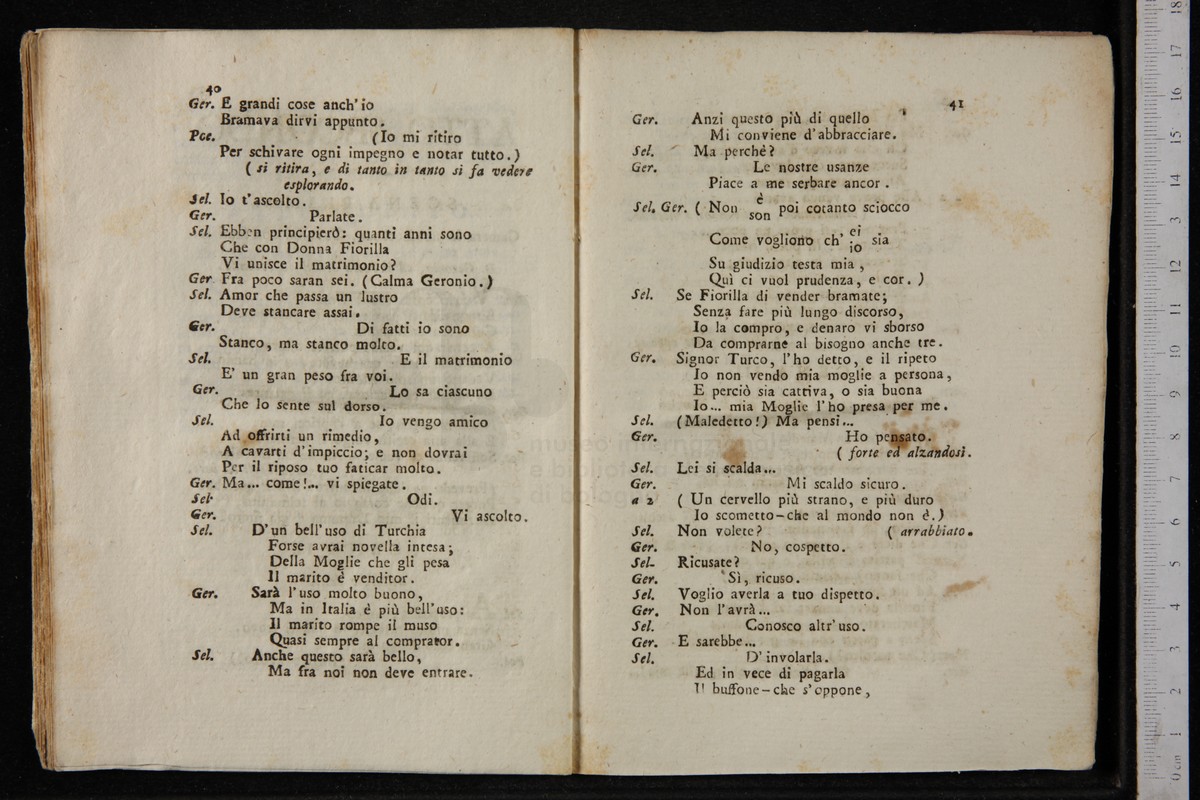 40
Ger. E grandi cose anch' io
Bramava dirvi appunto.
Poe. (Io mi ritiro
Per schivare ogni impegno e notar tutto.)
( si ritira, e di tanto in tanto si fa vedere
esplorando.
Sel. Io t'ascolto.
Ger. Parlate.
Sel. Ebben principierò: quanti anni sono
Che con Donna Fiorilla
Vi unisce il matrimonio?
Ger Fra poco saran sei. (Calma Geronio.)
Sel. Amor che passa un lustro
Deve stancare assai.
Ger. Di fatti io sono
Stanco, ma stanco molto.
Sel. E il matrimonio
E' un gran peso fra voi.
Ger. Lo sa ciascuno
Che lo sente sul dorso.
Sel. Io vengo amico
Ad offrirti un rimedio,
A cavarti d'impiccio; e non dovrai
Per il riposo tuo faticar molto.
Ger. Ma... come!... vi spiegate.
Sel· Odi.
Ger. Vi ascolto.
Sel. D'un bell'uso di Turchia
Forse avrai novella intesa;
Della Moglie che gli pesa
Il marito è venditor.
Ger. Sarà l'uso molto buono,
Ma in Italia è più bell'uso:
Il marito rompe il muso
Quasi sempre al comprator.
Sel. Anche questo sarà bello,
Ma fra noi non deve entrare.
41
Ger. Anzi questo più di quello
Mi conviene d'abbracciare.
Sel. Ma perchè?
Ger. Le nostre usanze
Piace a me serbare ancor.
è
Sel. Ger. ( Non son poi cotanto sciocco
ei
Come vogliono ch' io sia
Su giudizio testa mia,
Quì ci vuol prudenza, e cor. )
Sel. Se Fiorilla di vender bramate;
Senza fare più lungo discorso,
Io la compro, e denaro vi sborso
Da comprarne al bisogno anche tre.
Ger. Signor Turco, l'ho detto, e il ripeto
Io non vendo mia moglie a persona,
E perciò sia cattiva, o sia buona
Io... mia Moglie l'ho presa per me.
Sel. (Maledetto!) Ma pensi...
Ger. Ho pensato.
( forte ed alzandosi.
Sel. Lei si scalda...
Ger. Mi scaldo sicuro.
a 2 ( Un cervello più strano, e più duro
Io scometto-che al mondo non è.)
Sel. Non volete? ( arrabbiato.
Ger. No, cospetto.
Sel- Ricusate?
Ger. Sì, ricuso.
Sel. Voglio averla a tuo dispetto.
Ger. Non l'avrà...
Sel. Conosco altr' uso.
Ger. E sarebbe...
Sel. D' involarla.
Ed in vece di pagarla
Il buffone-che s'oppone,